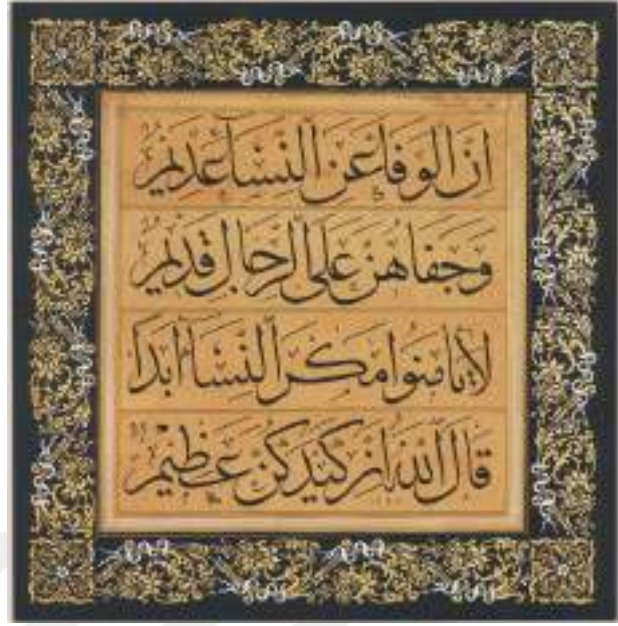 ان الوفا عن النسا عديم
وجفاهن على الرجال قديم
لا يامنوا مكر النسا ابدا
قال الله ان كيدكن عظيم